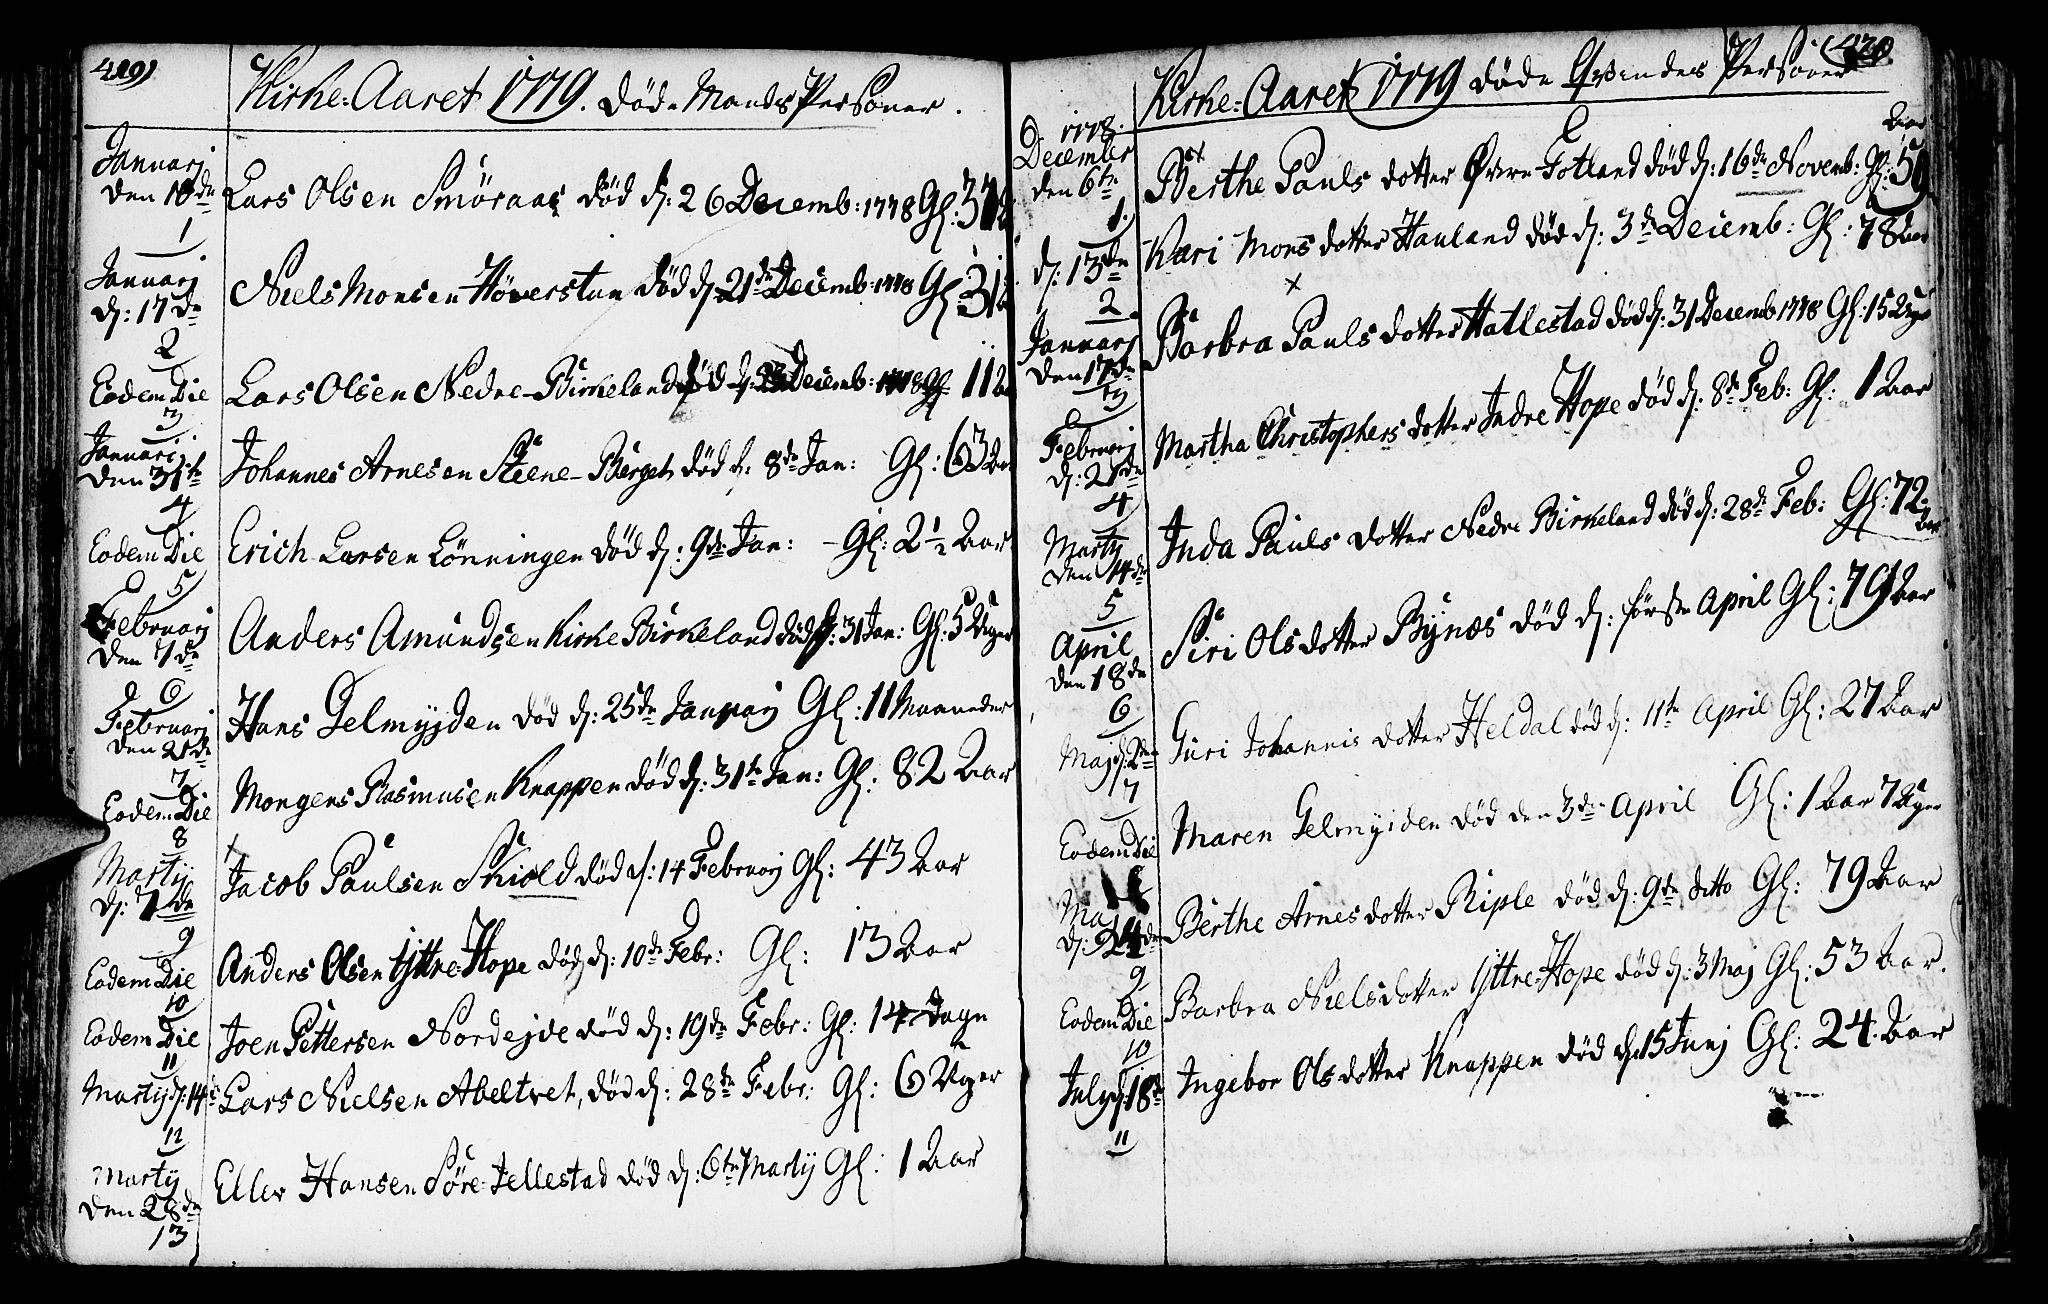 419)
Kirke-Aaret 1779. Døde MandsPersoner.
Januarj den 10de 1 Lars Olsen Smöraas død d: 26 Decemb: 1778 Gl:
Januarj d: 17de 2 Niels Monsen Höverstun død d. 21de Decemb: 1778 Gl:
Eodem Die 3 Lars Olsen Nedre-Birkeland død d: Decemb: 1778 Gl: 11
Januarij den 31te 4 Johannes Arnesen Steene-Berget død d: 8de Jan: Gl: 63
Eodem Die 5 Erich Larsen Lönningen død d: 9de Jan: Gl: 2 1/2 Aar
Februarj den 7de 6 Anders Amundsen Kirke Birkeland død d: 31 Jan: Gl: 5 Uger
Februarj den 21de 7 Hans Gelmyjden død d: 25de Januarj Gl: 11 Maaneder
Eodem Die 8 Mongens Rasmusen Knappen død d: 31te Jan: Gl: 82 Aar
Martij d: 7de 9 Jacob Paulsen Skiold død d: 14 Februarj Gl: 43 Aar
Eodem Die 10 Anders Olsen Ytre-Hope død d: 10de Febr: Gl: 13 Aar
Eodem Die 11 Joen Pettersen Nordejde død d: 19de Febr: Gl: 14 Dage
Martij d: 14de 12 Lars Nielsen Abeltvet, død d: 28de Febr: Gl: 6 Uger
Martij den 28de 13 Eller Hansen Söre-Tellestad død d: 6te Martij Gl: 1 Aar
(420.
Kirke-Aaret 1779 døde Qvindes Personer
Aar
1778. December den 6te 1. Berthe Pauls dotter Øvre-Totland død d: 16de Novemb: Gl:
d: 13de 2 Kari Mons dotter Hauland død d: 3de Decemb: Gl: 78 Aar
Januarj den 17de Barbra Pauls dotter Hatlestad død d: 31 Decemb 1778 Gl: 15 Uger
Februarj d: 21de 4 Martha Christophers dotter Indre Hope død d: 8de Feb: Gl: 1 Aar
Martij den 14de 5 Inda Pauls dotter Nedre Birkeland død d: 28de Feb: Gl: 72 Aar
April den 18de 6 Siri Ols dotter Bynæs død d: første April Gl: 79 Aar
Maj d: 2den 7 Guri Johannis dotter Heldal død d: 11te April Gl: 27 Aar
Eodem Die Maren Gelmyiden død den 3de April Gl: 1 Aar 7 Uger
Maj d: 24de 9 Berthe Arnes dotter Riple død d: 9de ditto Gl: 79 Aar
Eodem Die 10 Barbra Niels dotter Ytre-Hope død d: 3 Maj Gl: 53 Aar.
July d: 18de 11 Ingebor Ols dotter Knappen død d: 15 Junj Gl: 24 Aar